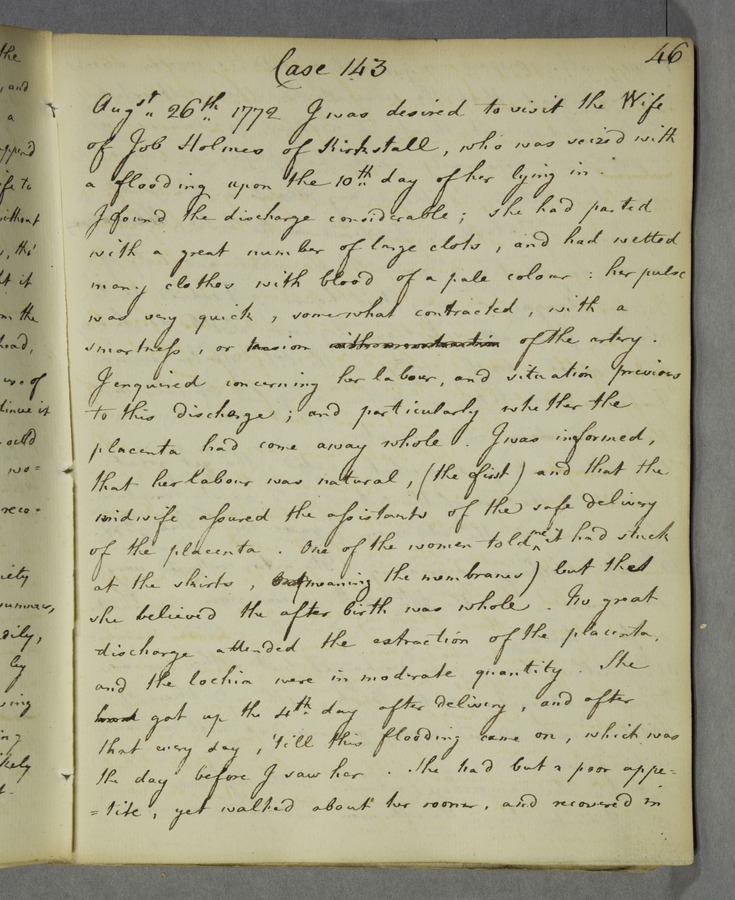 46
Case 143
Augst 26th 1772 I was desired to visit the Wife
of Job Holmes of Kirkstall, who was seized with
a flooding upon the 10th day of her lying in.
I found the discharge considerable; she had parted
with a great number of large clots, and had wetted
many clothes with blood of a pale colour: her pulse
was very quick, somewhat contracted, with a
smartness, or tension of the artery.
I enquired concerning her labour, and situation previous
to this discharge; and particularly whether the
placenta had come away whole. I was informed,
that her labour was natural, (the first) and that the
midwife assured the assistants of the safe delivery
of the placenta. One of the women told me it had stuck
at the skirts, (meaning the membranes) but that
she believed the after birth was whole. No great
discharge attended the extraction of the placenta,
and the lochia were in moderate quantity. She
got up the 4th day after delivery, and after
that every day, 'till this flooding came on, which was
the day before I saw her. She had but a poor appe=
=tite, yet walked about her rooms, and recovered in
the
, and
a
append
ife to
without
, tho'
t it
m the
head,
use of
tinue it
ould
wo=
reco-
iety
dily,
by
ving
ing
kely